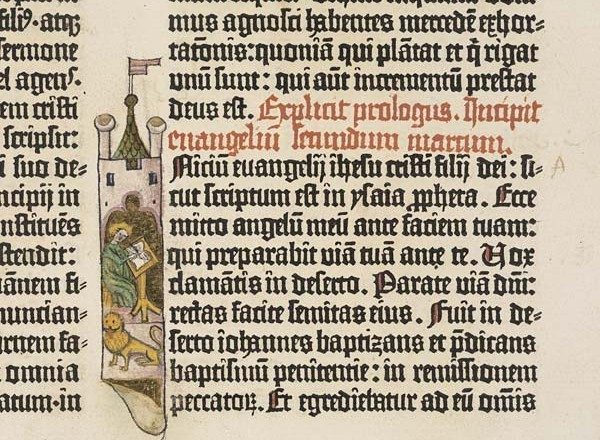 filiꝰ. atqꝫ
sermone
el agens.
em cristi
scripsit:
i suo de-
ncipij in
nstituēs
stendit:
iānem fi-
nuncian-
rnem fa-
omnia
atum·in
mus agnosci habētes mercedē exhor-
tatōnis: quoniā qui plātat et q̇ rigat
unū sunt: qui aūt incrementū prestat
deus est. Explicit prologus. Incipit
euangeliū secundum marcum.
Niciū euangelij ihesu cristi filij dei: si-
cut scriptum est in ysaia ꝓpheta. Ecce
mitto angelū meū ante faciem tuam:
qui preparabit viā tuā ante te. Vox
clamātis in deserto. Parate viā dn̄i:
rectas facite semitas eius. Fuit in de-
serto iohannes baptizans et p̄dicans
baptismū penitentie: in remissionem
peccatoꝝ. Et egrediebatur ad eū omīs